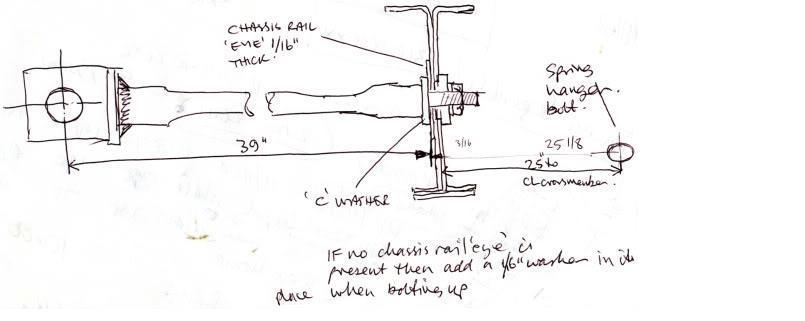 CHASSIS RAIL
'EYE' 1/16"
THICK.
Spring
hanger
bolt.
39"
3/16
25 1/8
25" to
CL crossmember.
'C' WASHER
IF no chassis rail 'eye' is
present then add a 1/16" washer in its
place when bolting up